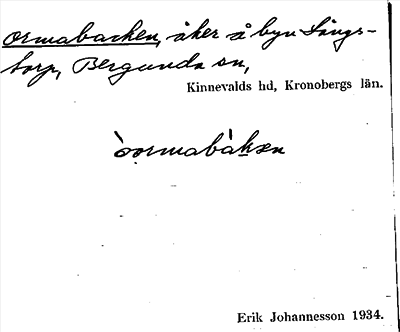 Ormabacken, åker å byn Långs-
torp, Bergunda sn,
Kinnevalds hd, Kronobergs län.
òọrmabàkən
Erik Johannesson 1934.